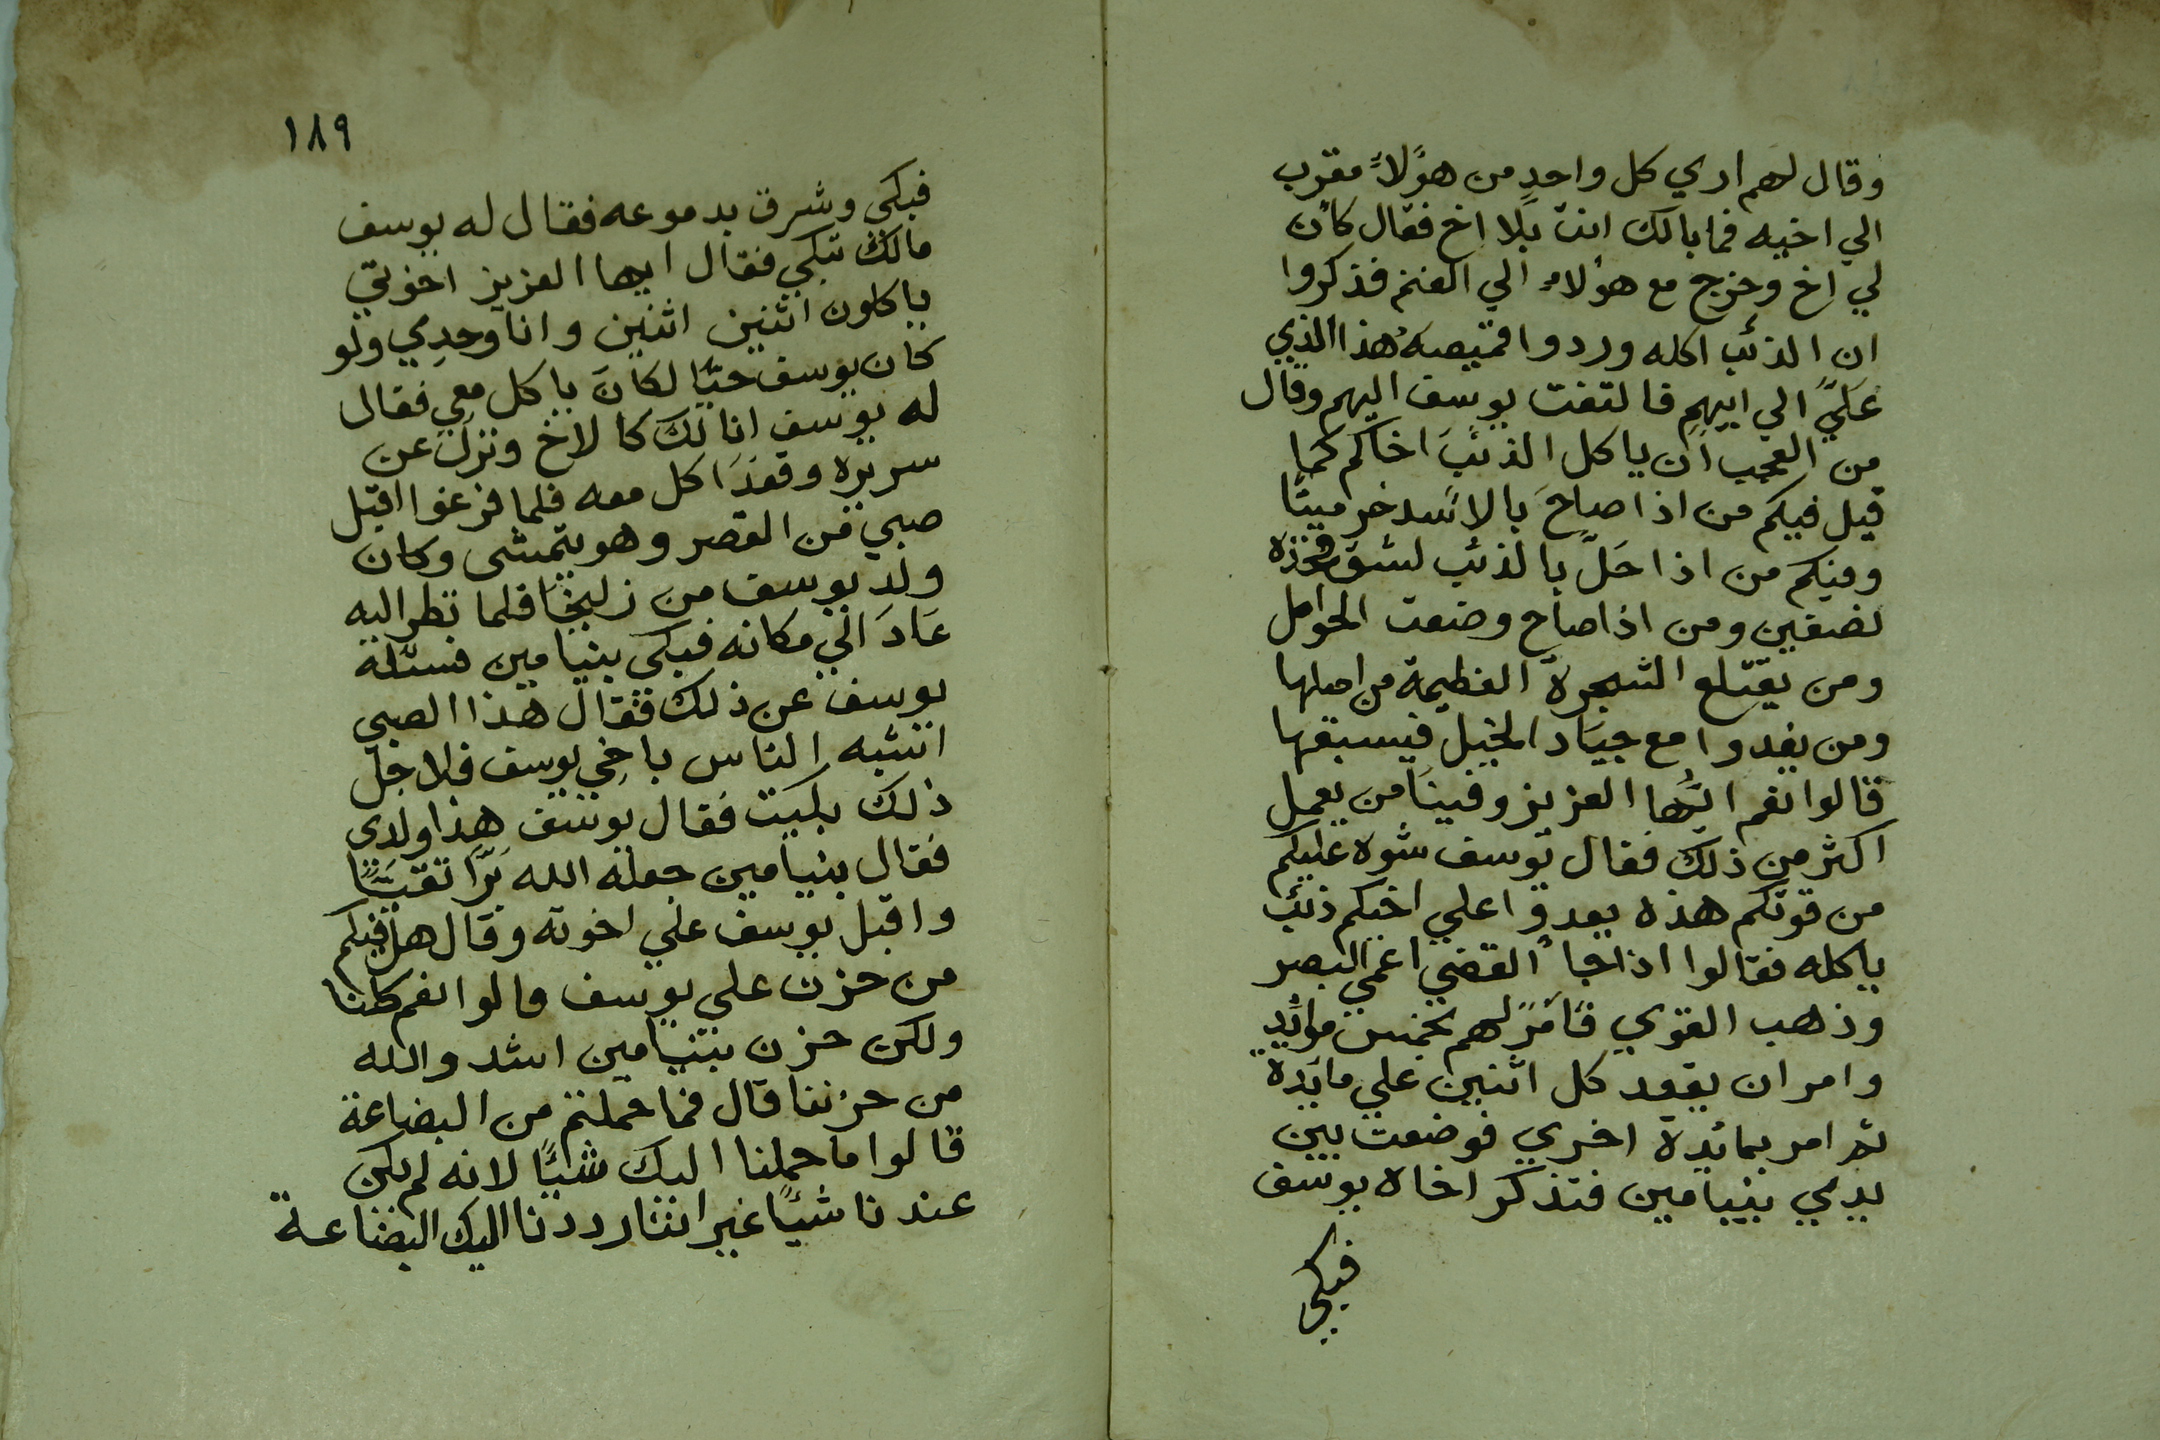 وقال لهم اري كل واحدٍ من هؤلاءً مقرب
الي اخيه فما بالك انت بلا اخ فقال كان
لي اخ وخرج مع هؤلاء الي الغنم فذكروا
ان الذئب اكله وردوا قميصه هذا الذي
عَليَّ الي ابيهم فالتفت يوسف اليهم وقال
من العجب ان ياكل الذئبَ اخاكم كما
قيل فيكم من اذا صاحَ بالاسد خر ميتًا
ومنكم من اذا حَلَّ بالذئب لشق فخذه
نصفين ومن اذا صاح وضعت الحوامل
ومن يقتلع الشجرة العظيمة من اصلها
ومن يغدوا مع جيَاد الخيل فيسبقها
قالوا نعم ايُّها العزيز وفينَا من يعمل
اكثر من ذلك فقال يوسف شوه عليكم
من قوتكم هذه يعدوا علي اخيكم ذئب
ياكله فقالوا اذا جاء القضي اعمي البصر
وذهب القوي فَامَرَ لهم بخمس موائدٍ
وامر ان يقعد كل اثنين علي مايدة
ثم امر بمائدة اخري فوضعت بين
يدي بنيامين فتذكر اخاه يوسف
فبكي
١٨٩
فبكي وشرق بدموعه فقال له يوسف
مالك تبكي فقال ايها العزيز اخوتي
ياكلون اثنين اثنين وانا وحدِي ولو
كان يوسف حيًّا لكانَ ياكل معي فقال
له يوسف انا لكَ كالاخ ونزل عن
سريره وقعدَ اكل معه فلما فرغوا اقبل
صبي من القصر وهو يتمشى وكان
ولد يوسف من زليخا فلما نظر اليه
عَادَ الي مكانه فبكى بنيامين فسئله
يوسف عن ذلك فقال هذا الصبي
اشبه الناس باخِي يوسف فلاجل
ذلك بكيت فقال يوسف هذا ولدى
فقال بنيامين جعله الله بَرًّا تقيًّا
واقبل يوسف علي اخوته وقال هل فيكم
من حزن علي يوسف قالوا نعم كلنا
ولكن حزن بنيامين اشد والله
من حزننا قال فما حملتم من البضاعة
قالوا ما حملنا اليك شيئًا لانه لم يكن
عندنا شيئًا غير اننا رددنا اليك البضاعة